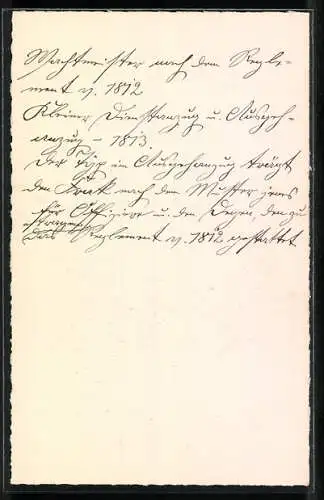 Wachtmeister nach dem Regle-
ment v. 1812
Kleiner Dienstanzug u. Ausgeh-
anzug – 1813.
Der Typ im Ausgehanzug trägt
den Frak nach dem Muster jenes
für Offiziere u. den Degen, den zu
tragen
das Reglement v. 1812 gestattet.